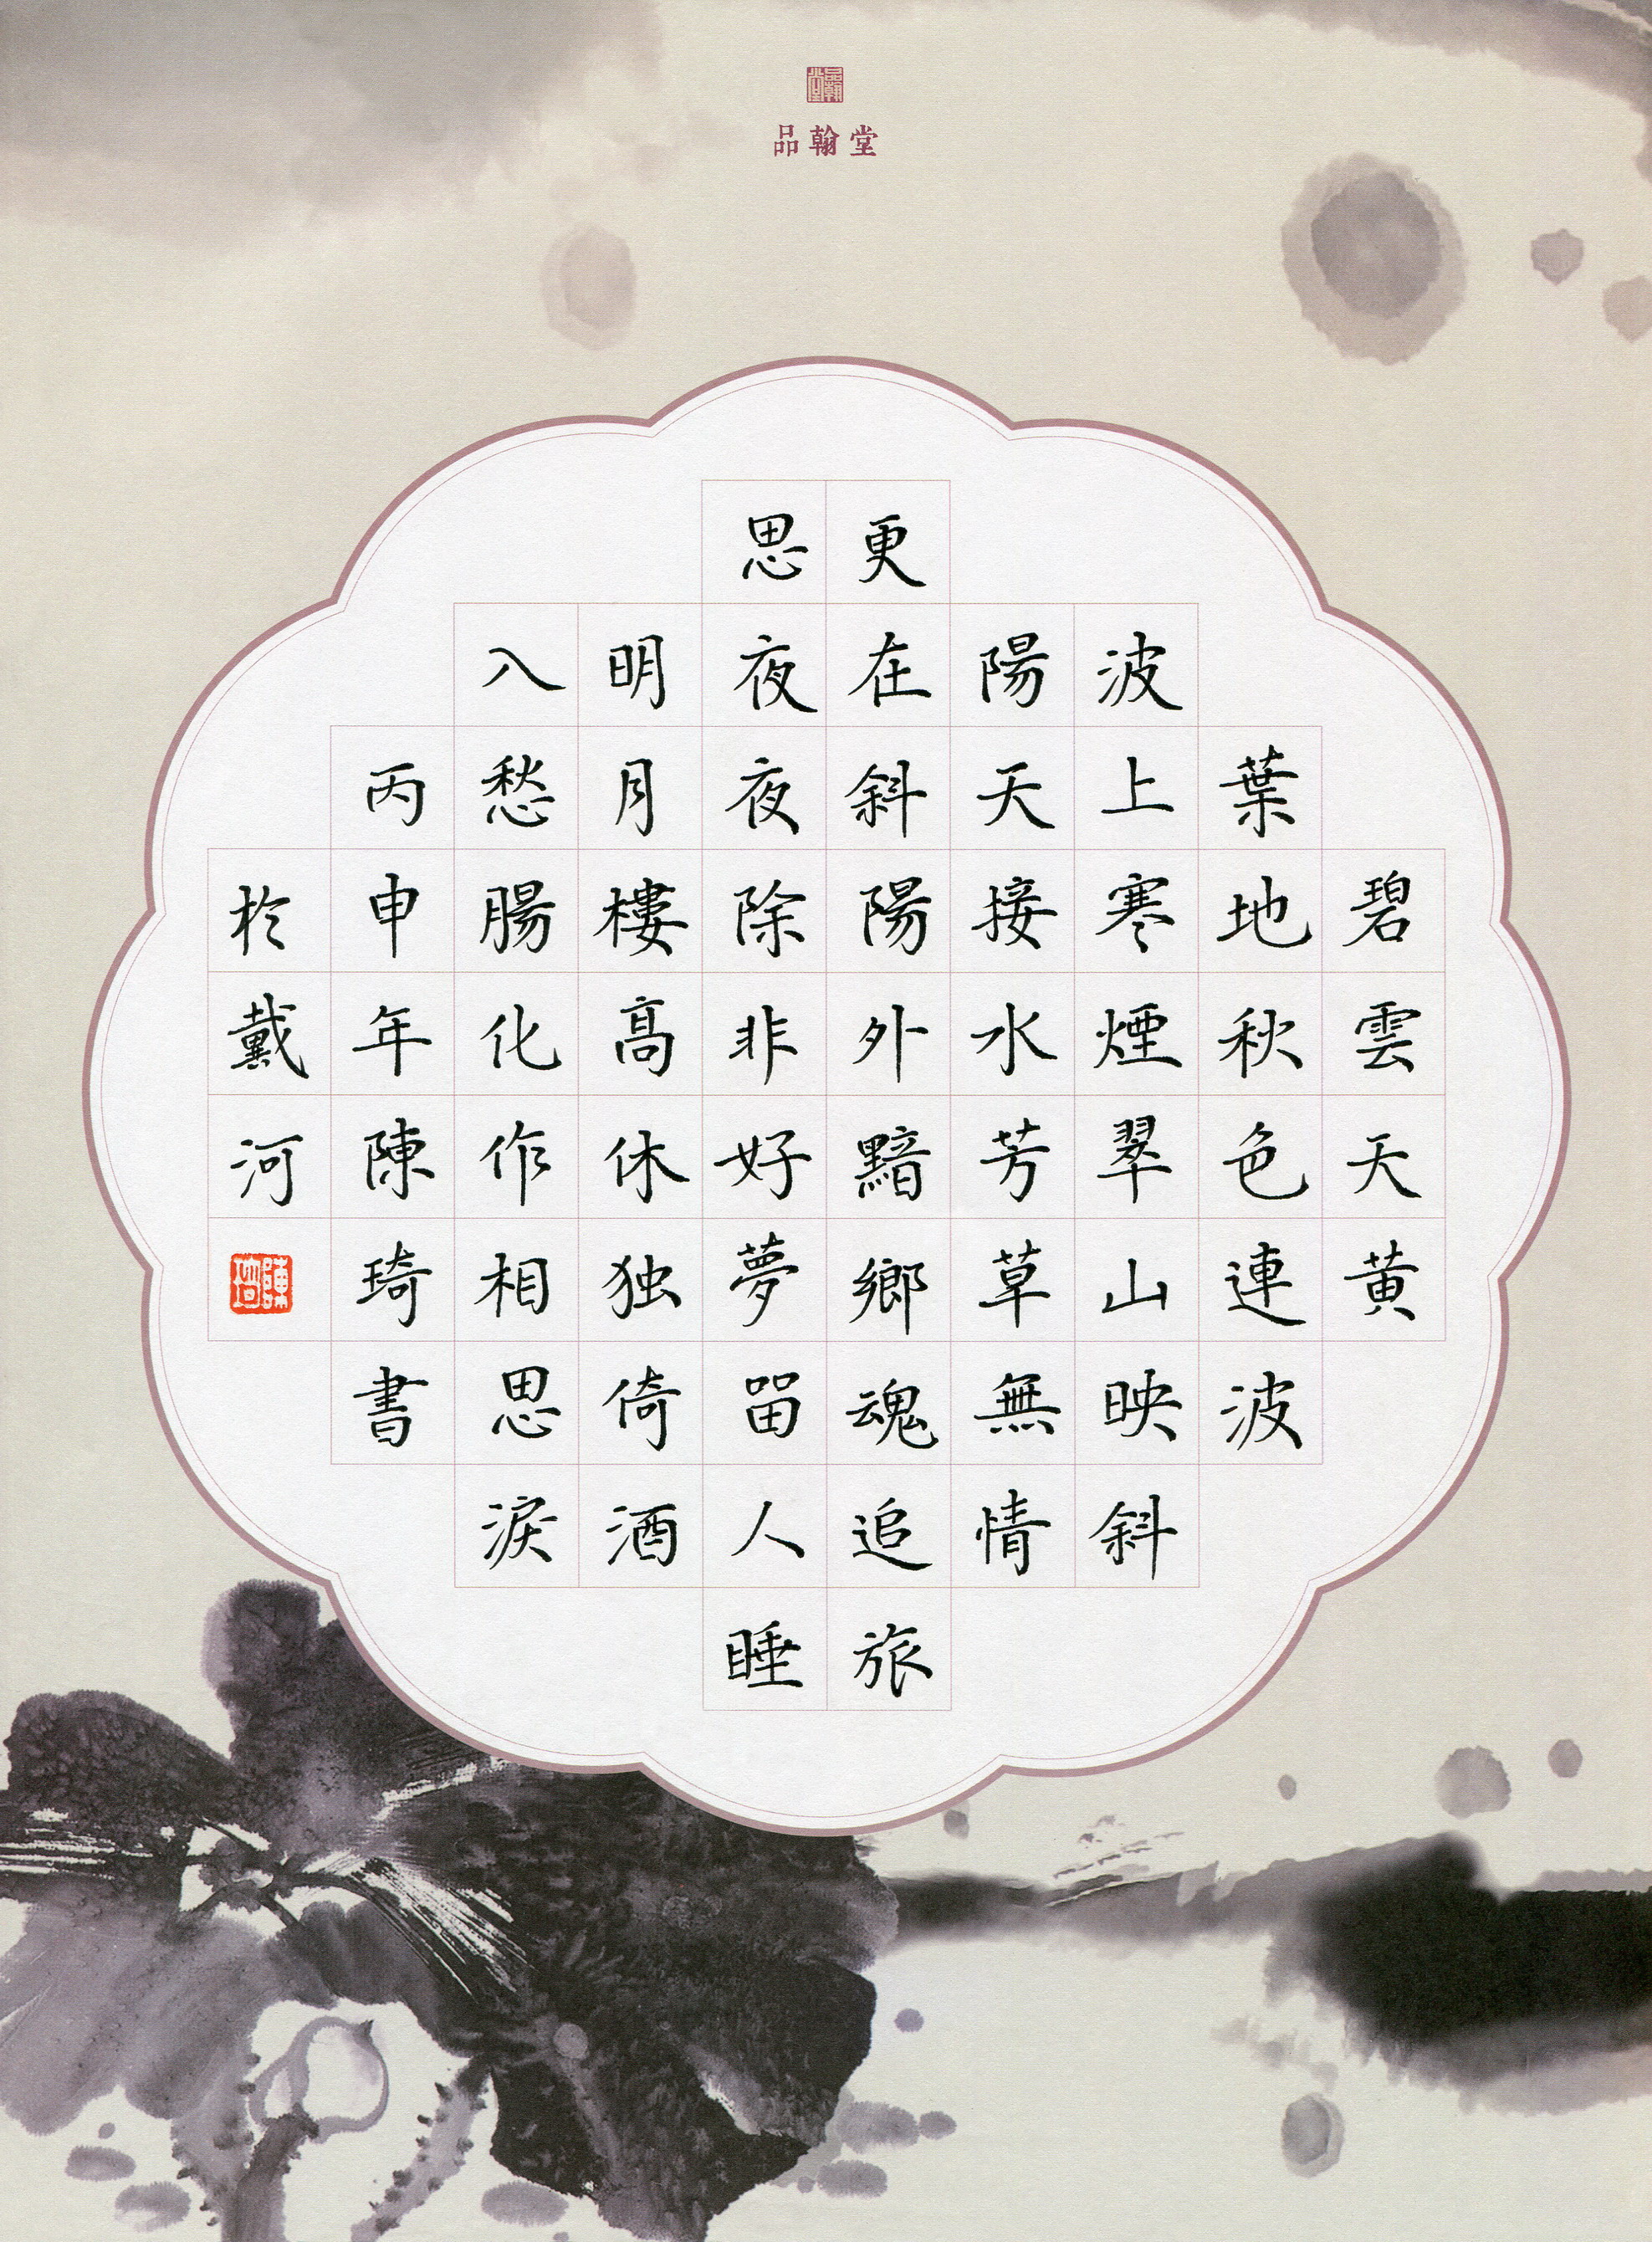 品翰堂
碧雲天黄
葉地秋色連波
波上寒煙翠山映斜
陽天接水芳草無情
更在斜陽外黯鄉魂追旅
思夜夜除非好夢畱人睡
明月樓高休独倚酒
入愁腸化作相思淚
丙申年陳琦書
於戴河